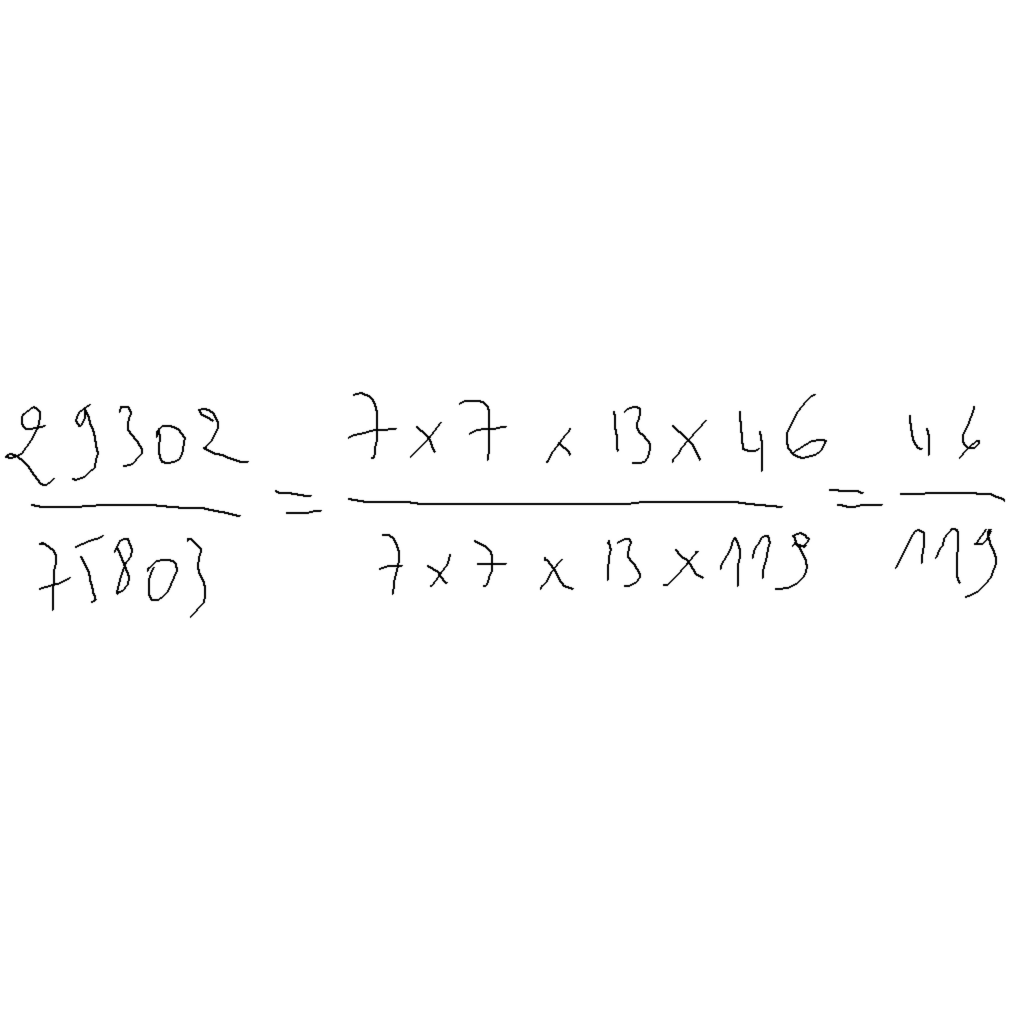 29302/75803 = (7 x 7 x 13 x 46)/(7 x 7 x 13 x 119) = 46/119